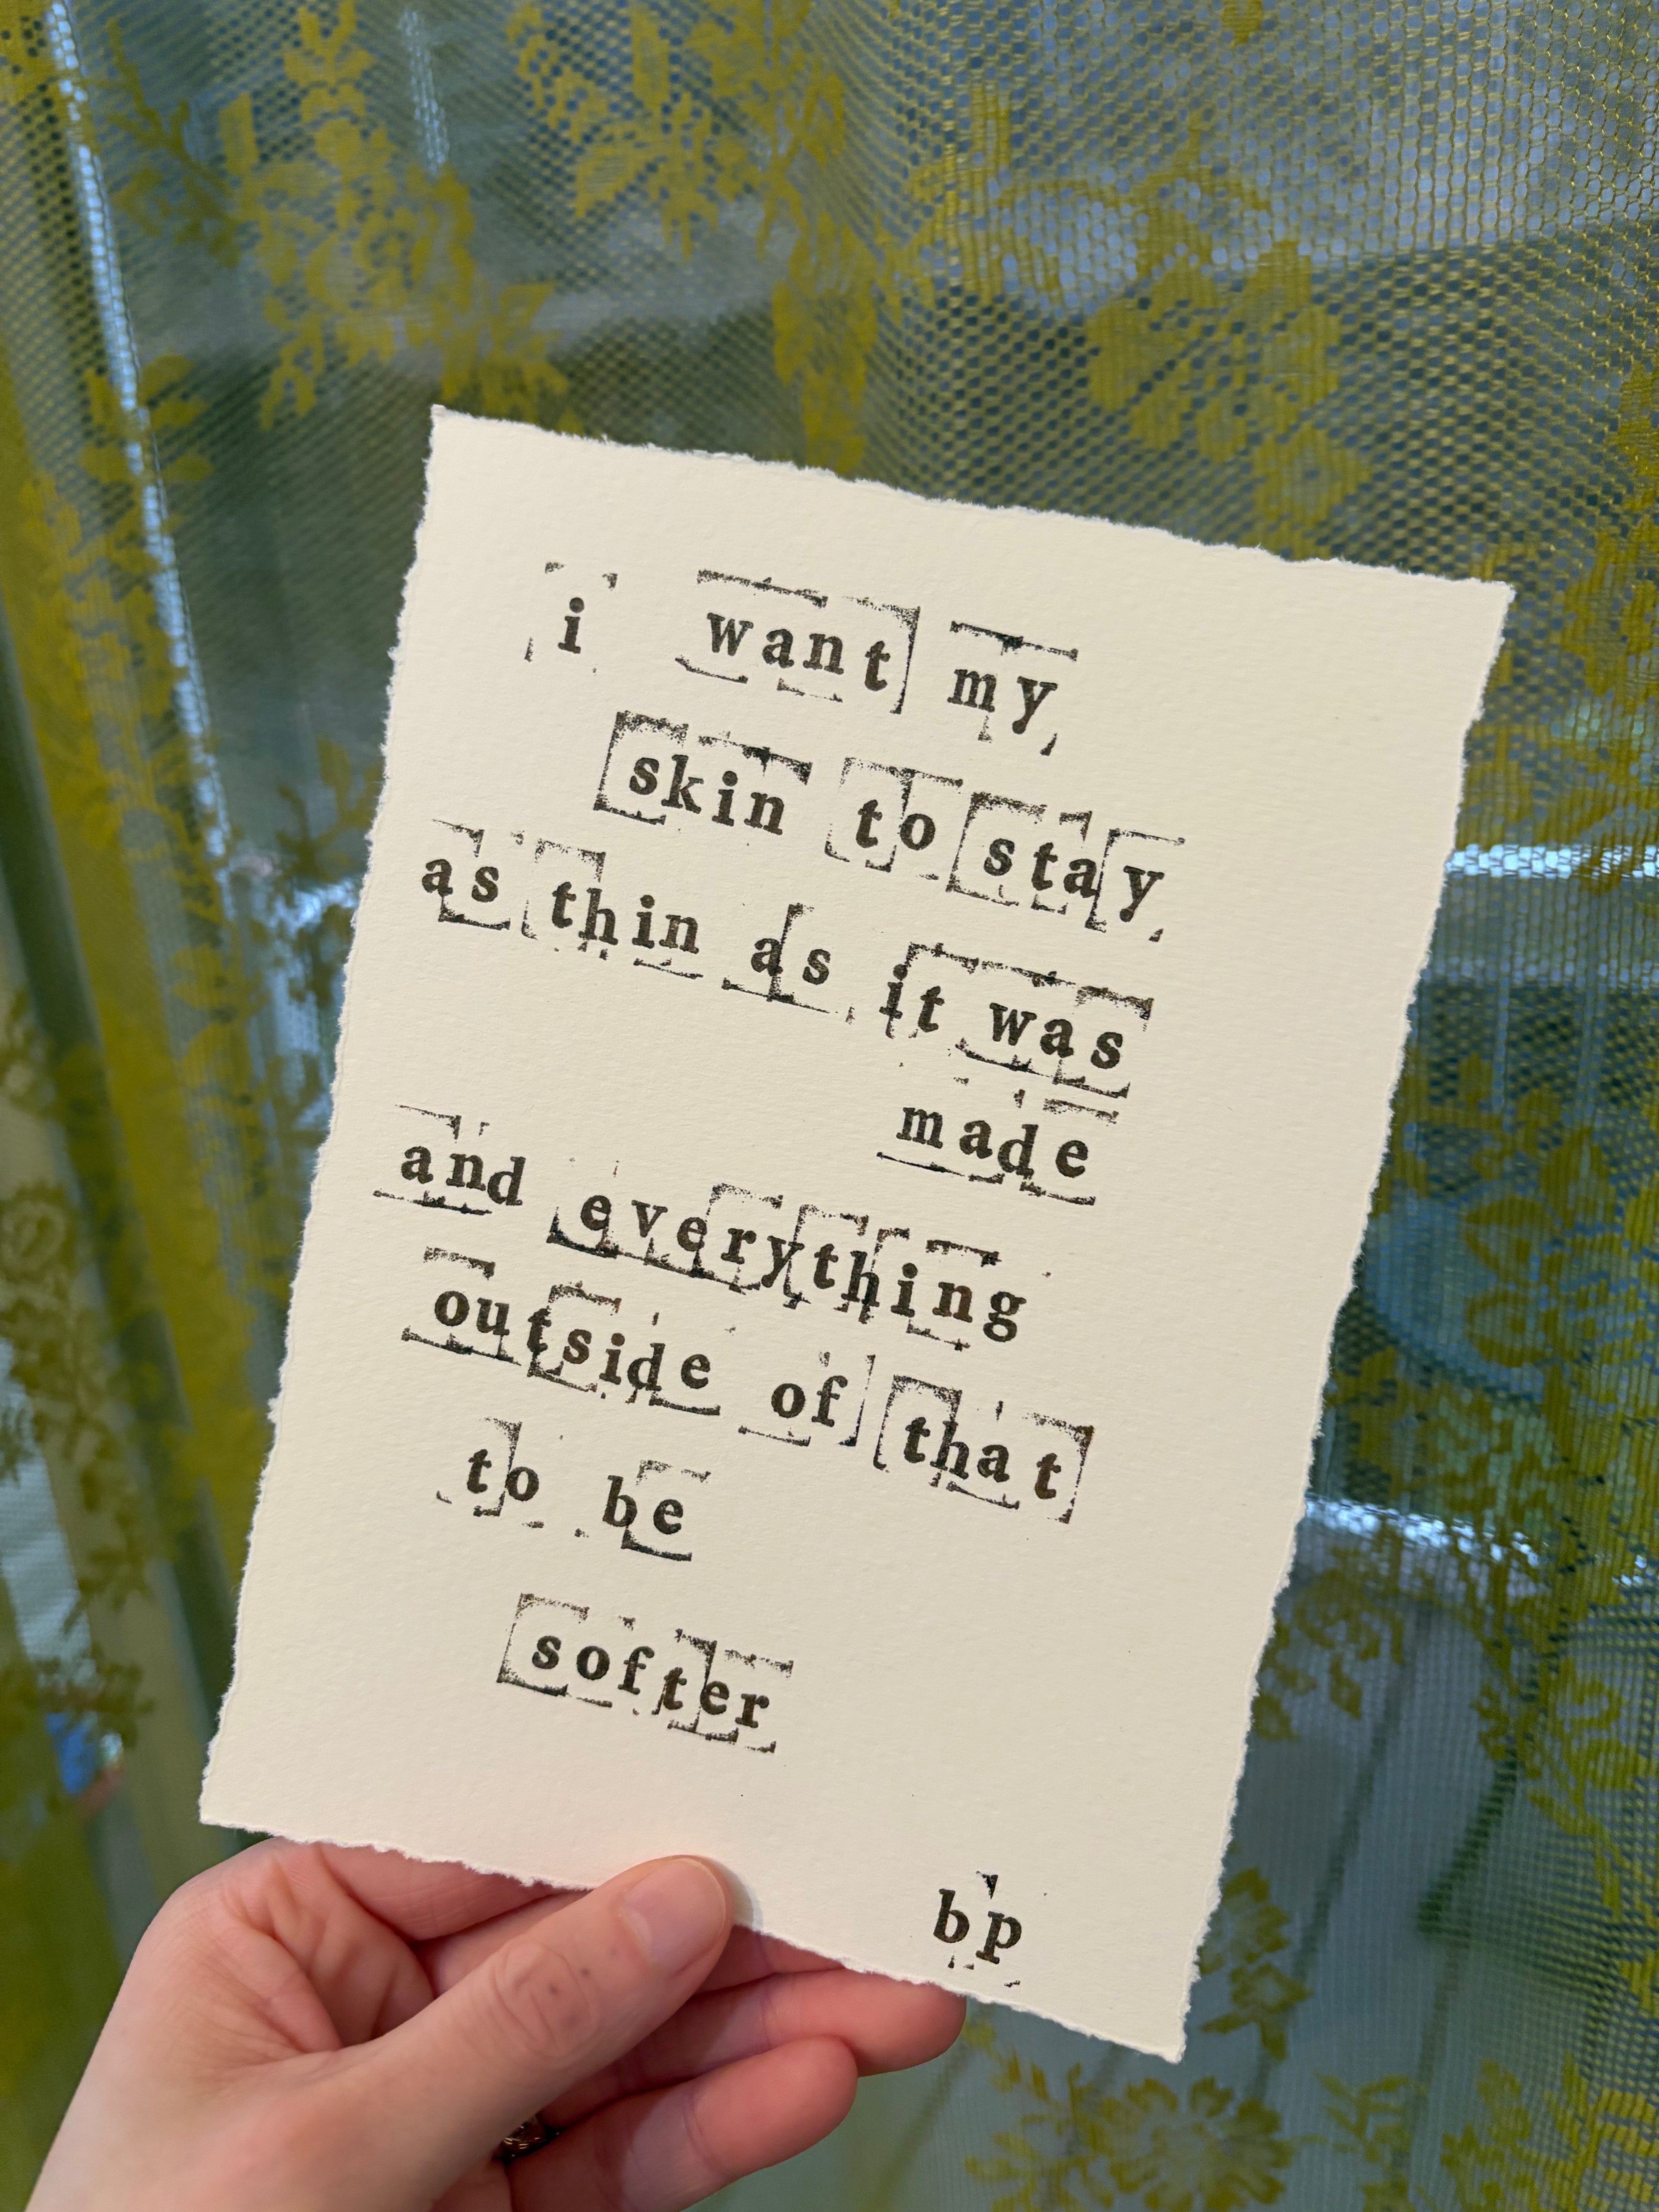 i want my
skin to stay
as thin as it was
made
and everything
outside of that
to be
softer
bp